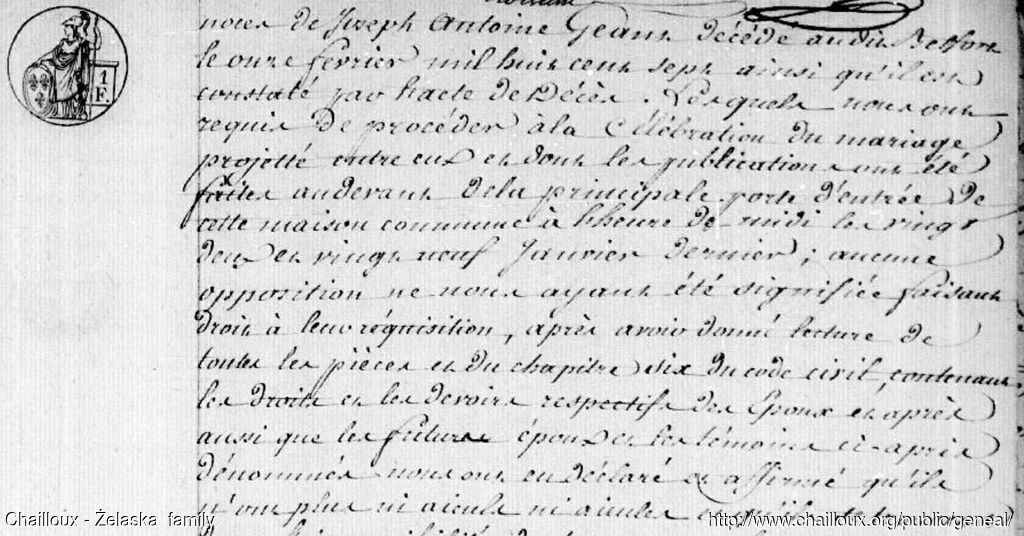 noces de Joseph Antoine Geant décédé audit Belfort
le onze fevrier mil huit cent sept ainsi qu'il est
constaté par l'acte de Décès. Lesquels nous ont
requis De procéder à la Célébration du mariage
projetté entre eux et dont les publications ont été
faites audevant dela principale porte d'entrée De
cette maison commune à l'heure de midi les vingt
deux et vingt neuf Janvier dernier; aucune
opposition ne nous ayant été signifiée faisant
droit à leur réquisition, après avoir donné lecture de
toutes les pièces et du chapitre six du code civil, contenant
les droits et les devoirs respectifs des Epoux et après
aussi que les futurs époux et les témoins ci-après
dénommés nous ont en déclaré et affirmé qu'ils
n'ont plus ni aieuls ni aieules
1 F.
Chailloux - Želaska family
http://www.chailloux.org/public/geneal/